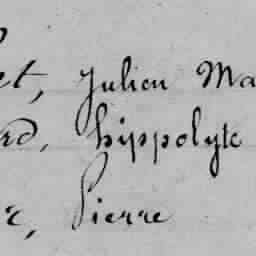 et, Julien Ma
rd, hippolyte
r, Pierre